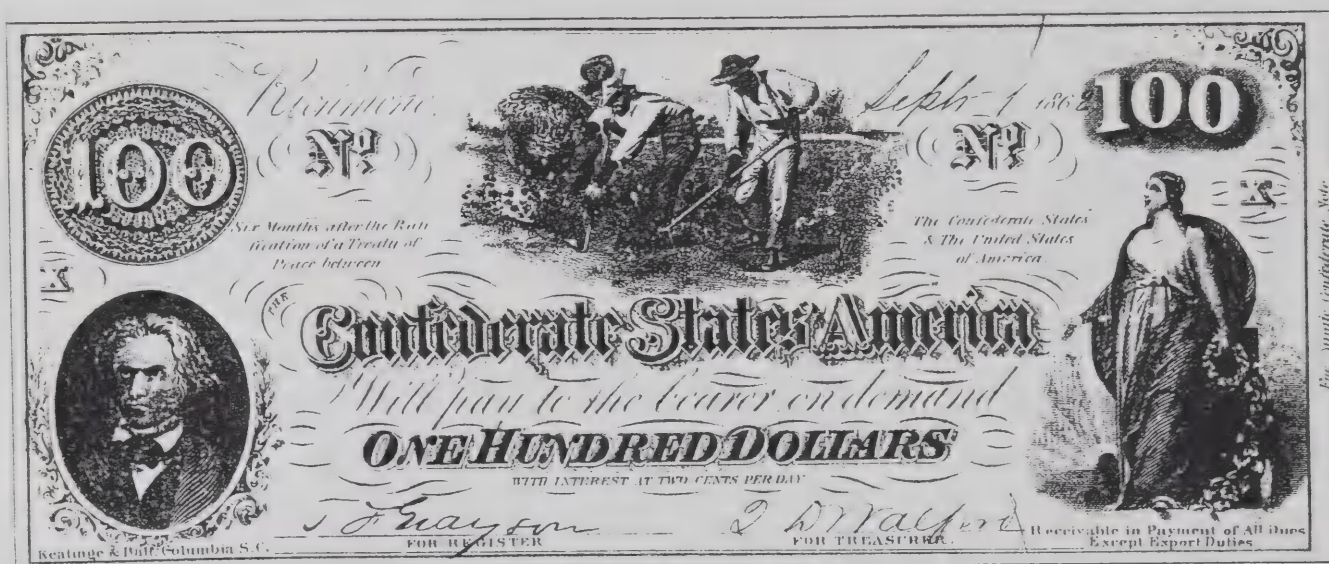 Richmond
Septr 1 186
100
100
No
No
Six Months after the Rati
fication of a Treaty of
Peace between
The Confederate States
& The United States
of America
THE
Confederate States America
Will pay to the bearer on demand
ONE HUNDRED DOLLARS
WITH INTEREST AT TWO CENTS PER DAY
FOR REGISTER
FOR TREASURER.
Keatinge & Ball, Columbia S.C.
Receivable in Payment of All Dues
Except Export Duties
Confederate Note